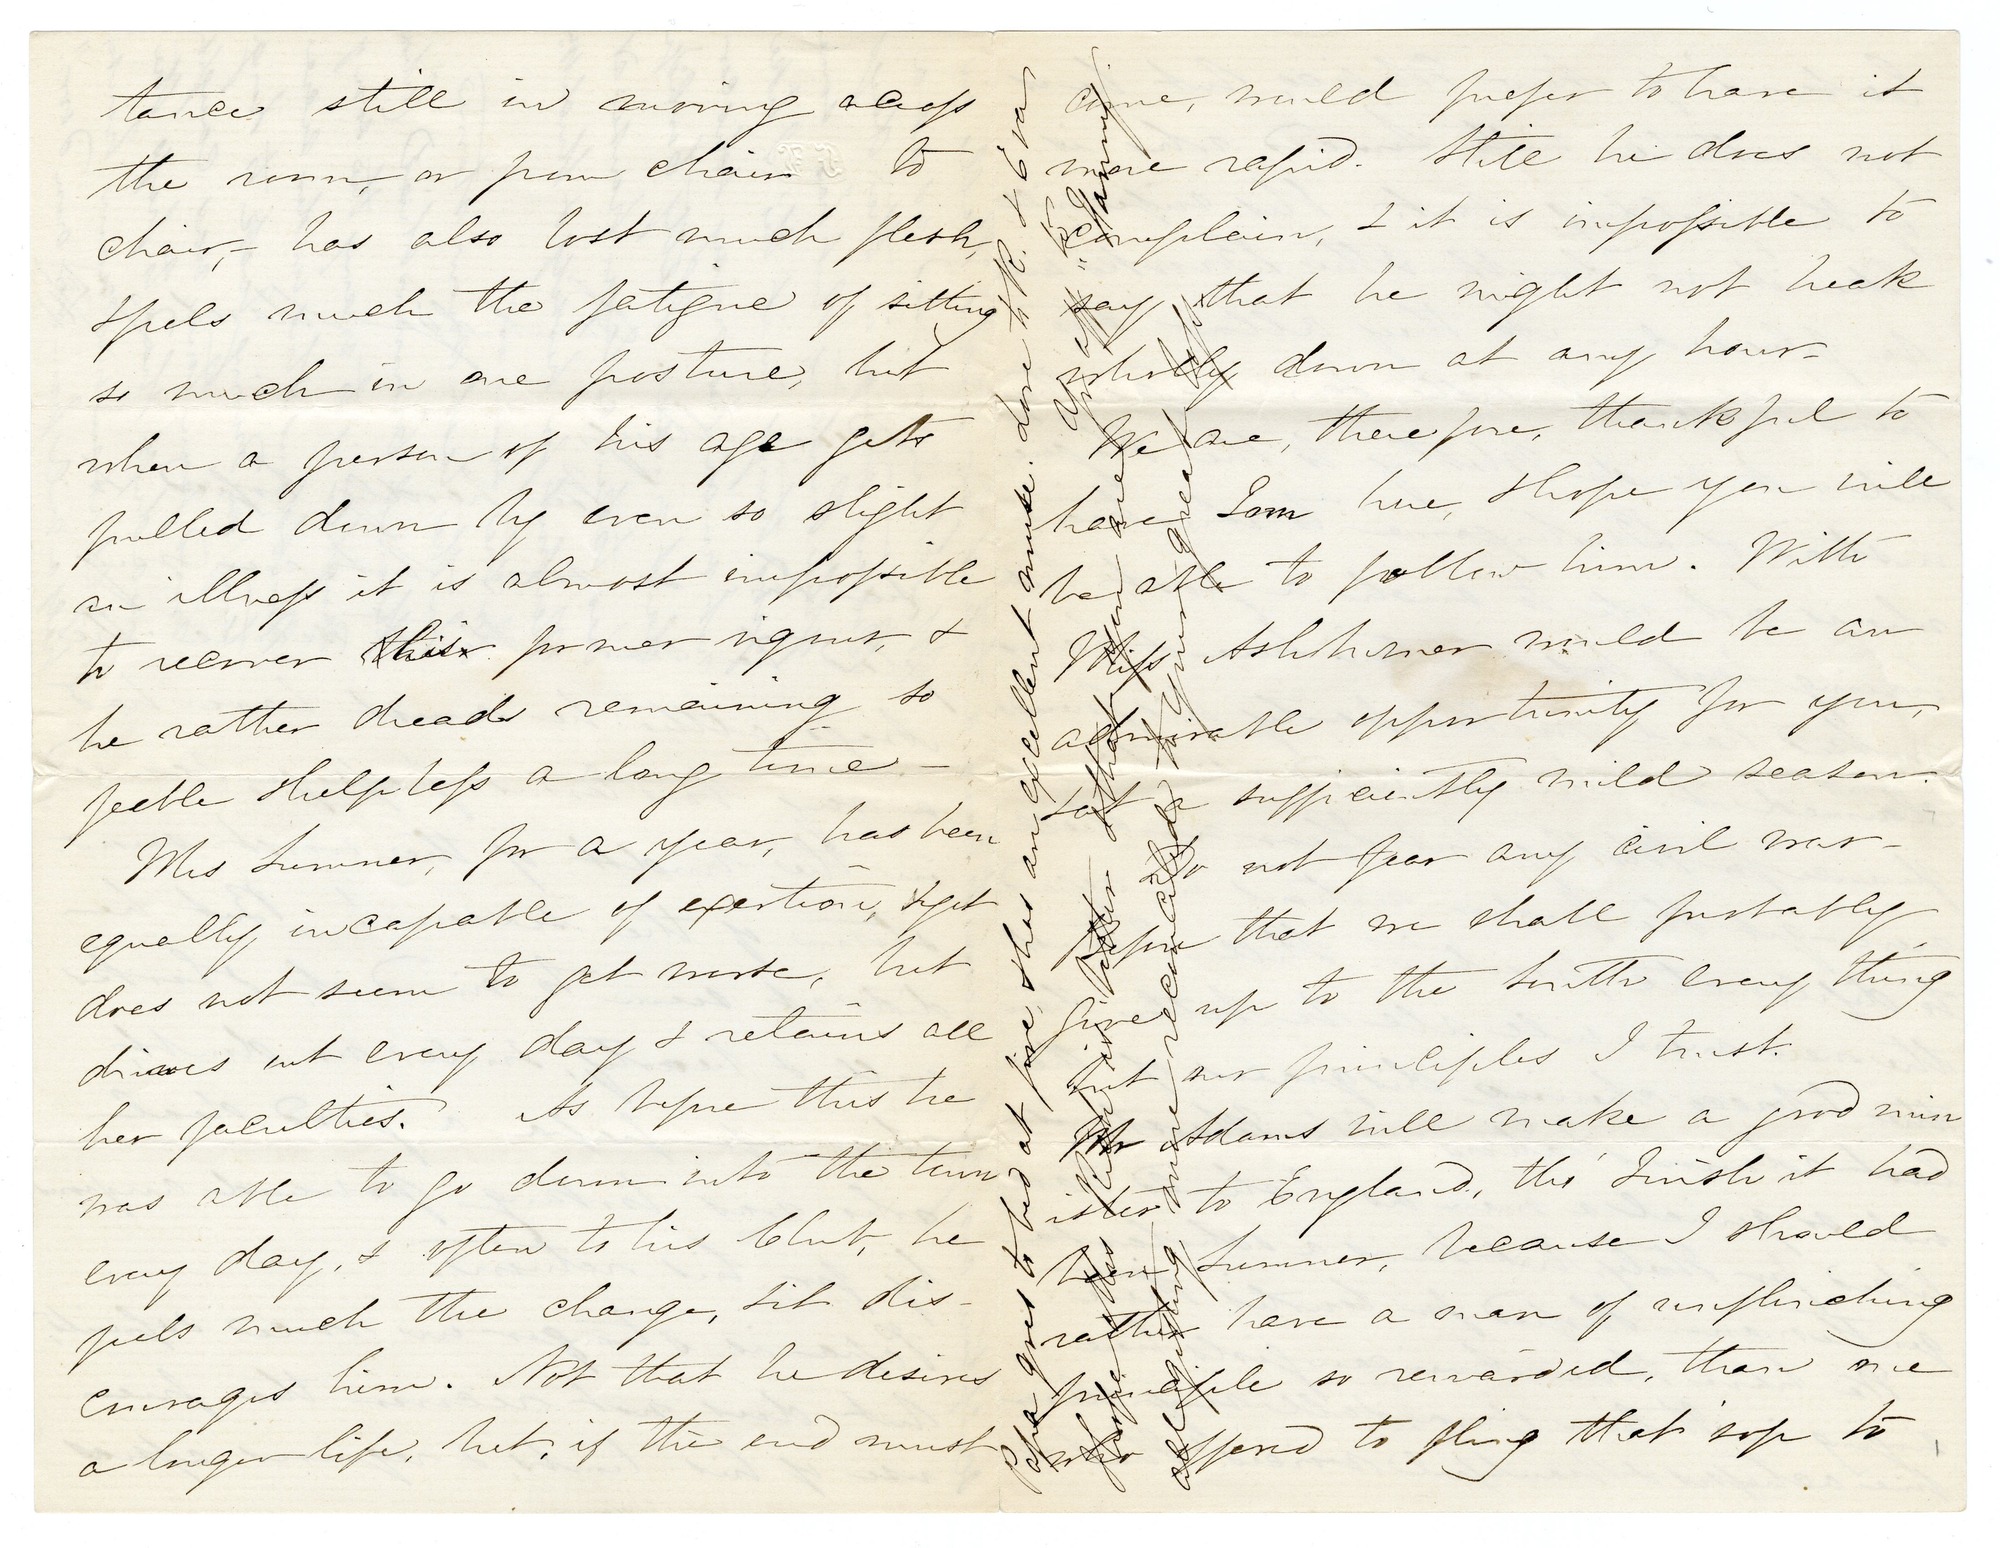 tance still in moving across
the room, or from chair to
chair, - has also lost much flesh,
& feels much the fatigue of sitting
so much in one posture, but
when a person of his age gets
pulled down by even so slight
an illness it is almost impossible
to recover his former vigour, &
he rather dreads remaining so
feeble & helpless a long time -
Mrs Sumner, for a year, has been
equally incapable of exertion, & yet
does not seem to get worse, but
drives out every day & retains all
her faculties. As before this he
was able to go down into the town
every day, & often to his Club, he
feels much the change, & it dis-
courages him. Not that he desires
a longer life, but, if the end must
come, would prefer to have it
more rapid. Still he does not
complain, & it is impossible to
say that he might not break
wholly down at any hour -
We are, therefore, thankful to
have Tom here, & hope you will
be able to follow him. With
Miss Ashburner would be an
admirable opportunity for you,
& at a sufficiently mild season.
Do not fear any civil war -
before that we shall probably
give up to the South every thing
but our principles I trust.
Mr Adams will make a good min
ister to England, tho' I wish it had
been Sumner, because I should
rather have a man of unflinching
principle so rewarded, than one
who offered to fling that sop to
Papa goes to bed at five, & has an excellent nurse. Love to K. & Eva
I hope this will find Potter better & that you are
all getting more reconciled to your great
Yr aff